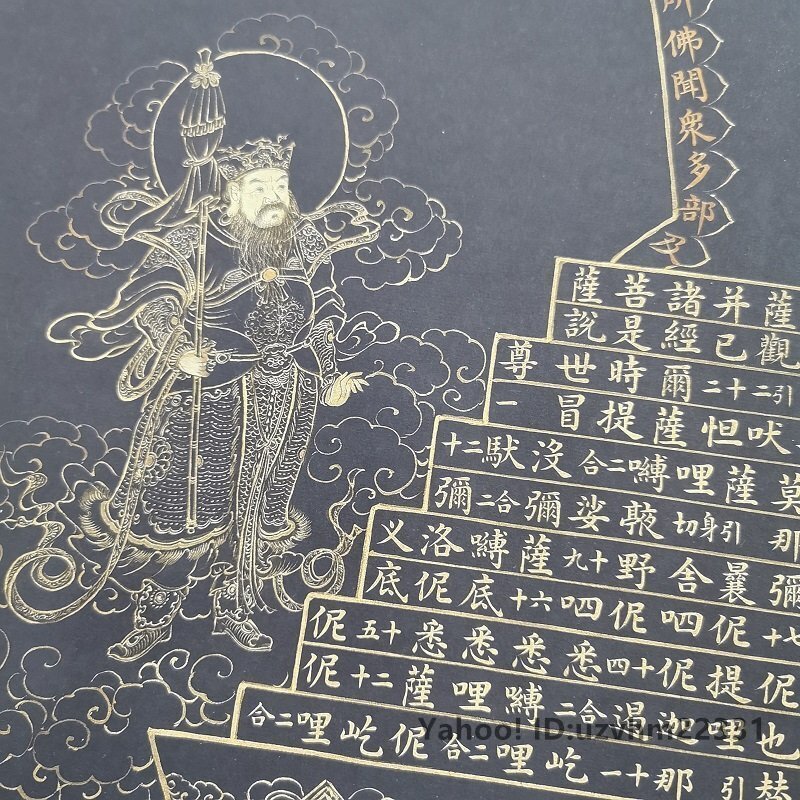 佛聞衆多部
薩并諸菩薩
觀已經是說
引二二十爾時世尊
吠怛薩提冒一
莫薩哩嚩二合沒馱二十
那引身切娑彌二合彌
彌曩舍野十九薩嚩洛义
十七伲呬伲呬十六底伲底
伲提伲十四悉悉悉悉十五伲
也哩迦遏二合嚩哩薩十二伲
替引那十一屹哩二合伲屹哩二合
Yahoo! ID:uzvhm22331